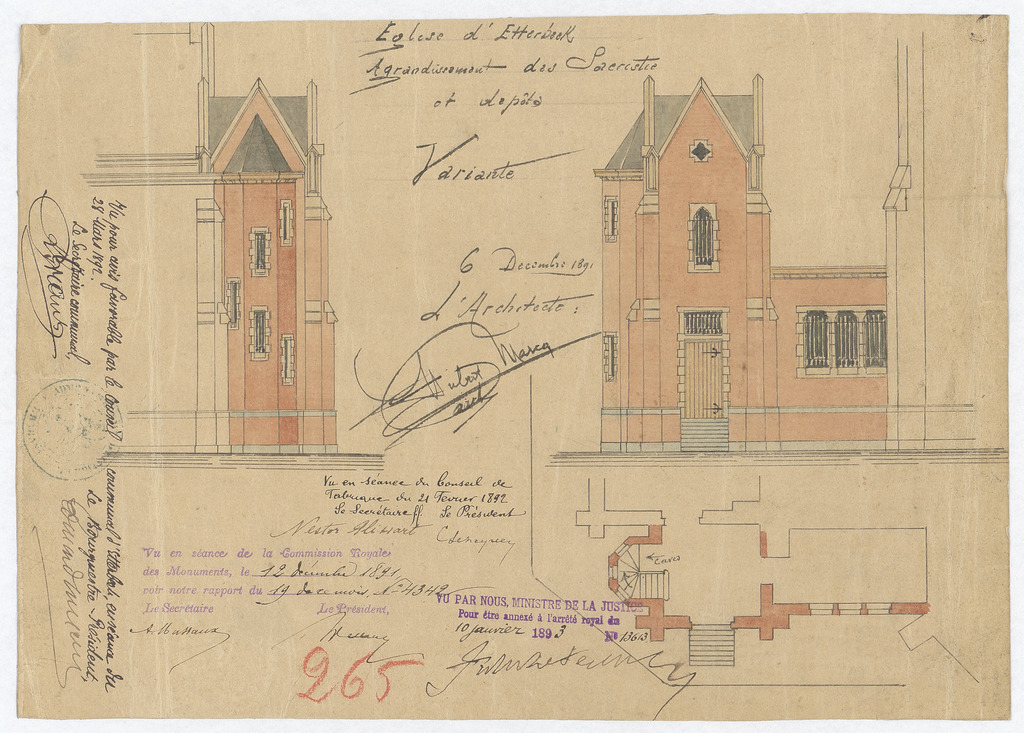 Eglise d'Etterbeek
Agrandissement des Sacristie
et dépôts
Variante
6 Décembre 1891
L'Architecte :
Hubert Marcq
arch
Vu en séance du Conseil de
Fabrique du 21 Février 1892
Le Secrétaire ff. Le Président
Nestor
Vu en séance de la Commission Royale
des Monuments, le 12 décembre 1891
voir notre rapport du 19 décembre, N° 4349
Le Secrétaire Le Président,
A. Massaux
VU PAR NOUS, MINISTRE DE LA JUSTICE
Pour être annexé à l'arrêté royal du
10 janvier 1893 No 13613
265
Vu pour avis favorable par le Conseil communal d'Etterbeek, en séance du
28 Mars 1892.
Le Secrétaire communal,
Le Bourgmestre-Président,